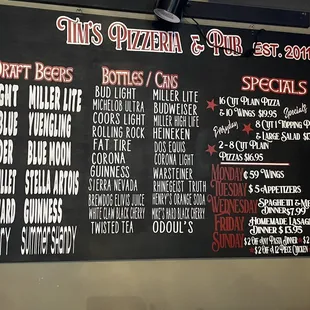 Tim's Pizzeria & Pub Est. 2011
Draft Beers
Miller Lite
Yuengling
Blue Moon
Stella Artois
Guinness
Summer Shandy
Bottles / Cans
Bud Light
Michelob Ultra
Coors Light
Rolling Rock
Fat Tire
Corona
Guinness
Sierra Nevada
Brewdog Elvis Juice
White Claw Black Cherry
Twisted Tea
Miller Lite
Budweiser
Miller High Life
Heineken
Dos Equis
Corona Light
Warsteiner
Rhinegeist Truth
Henry's Orange Soda
Mike's Hard Black Cherry
O'Doul's
Specials
16 Cut Plain Pizza
& 10 Wings $19.95 Specials
Everyday 8 Cut 1 Topping P
& Large Salad
2 - 8 Cut Plain
Pizzas $16.95
Monday ¢ 59 Wings
Tuesday $5 Appetizers
Wednesday Spaghetti & Me
Dinner $7.99
Friday Homemade Lasag
Dinner $ 13.95
Sunday $2 Off Any Pasta Dinner
$2 Off A 12 Piece Chicken